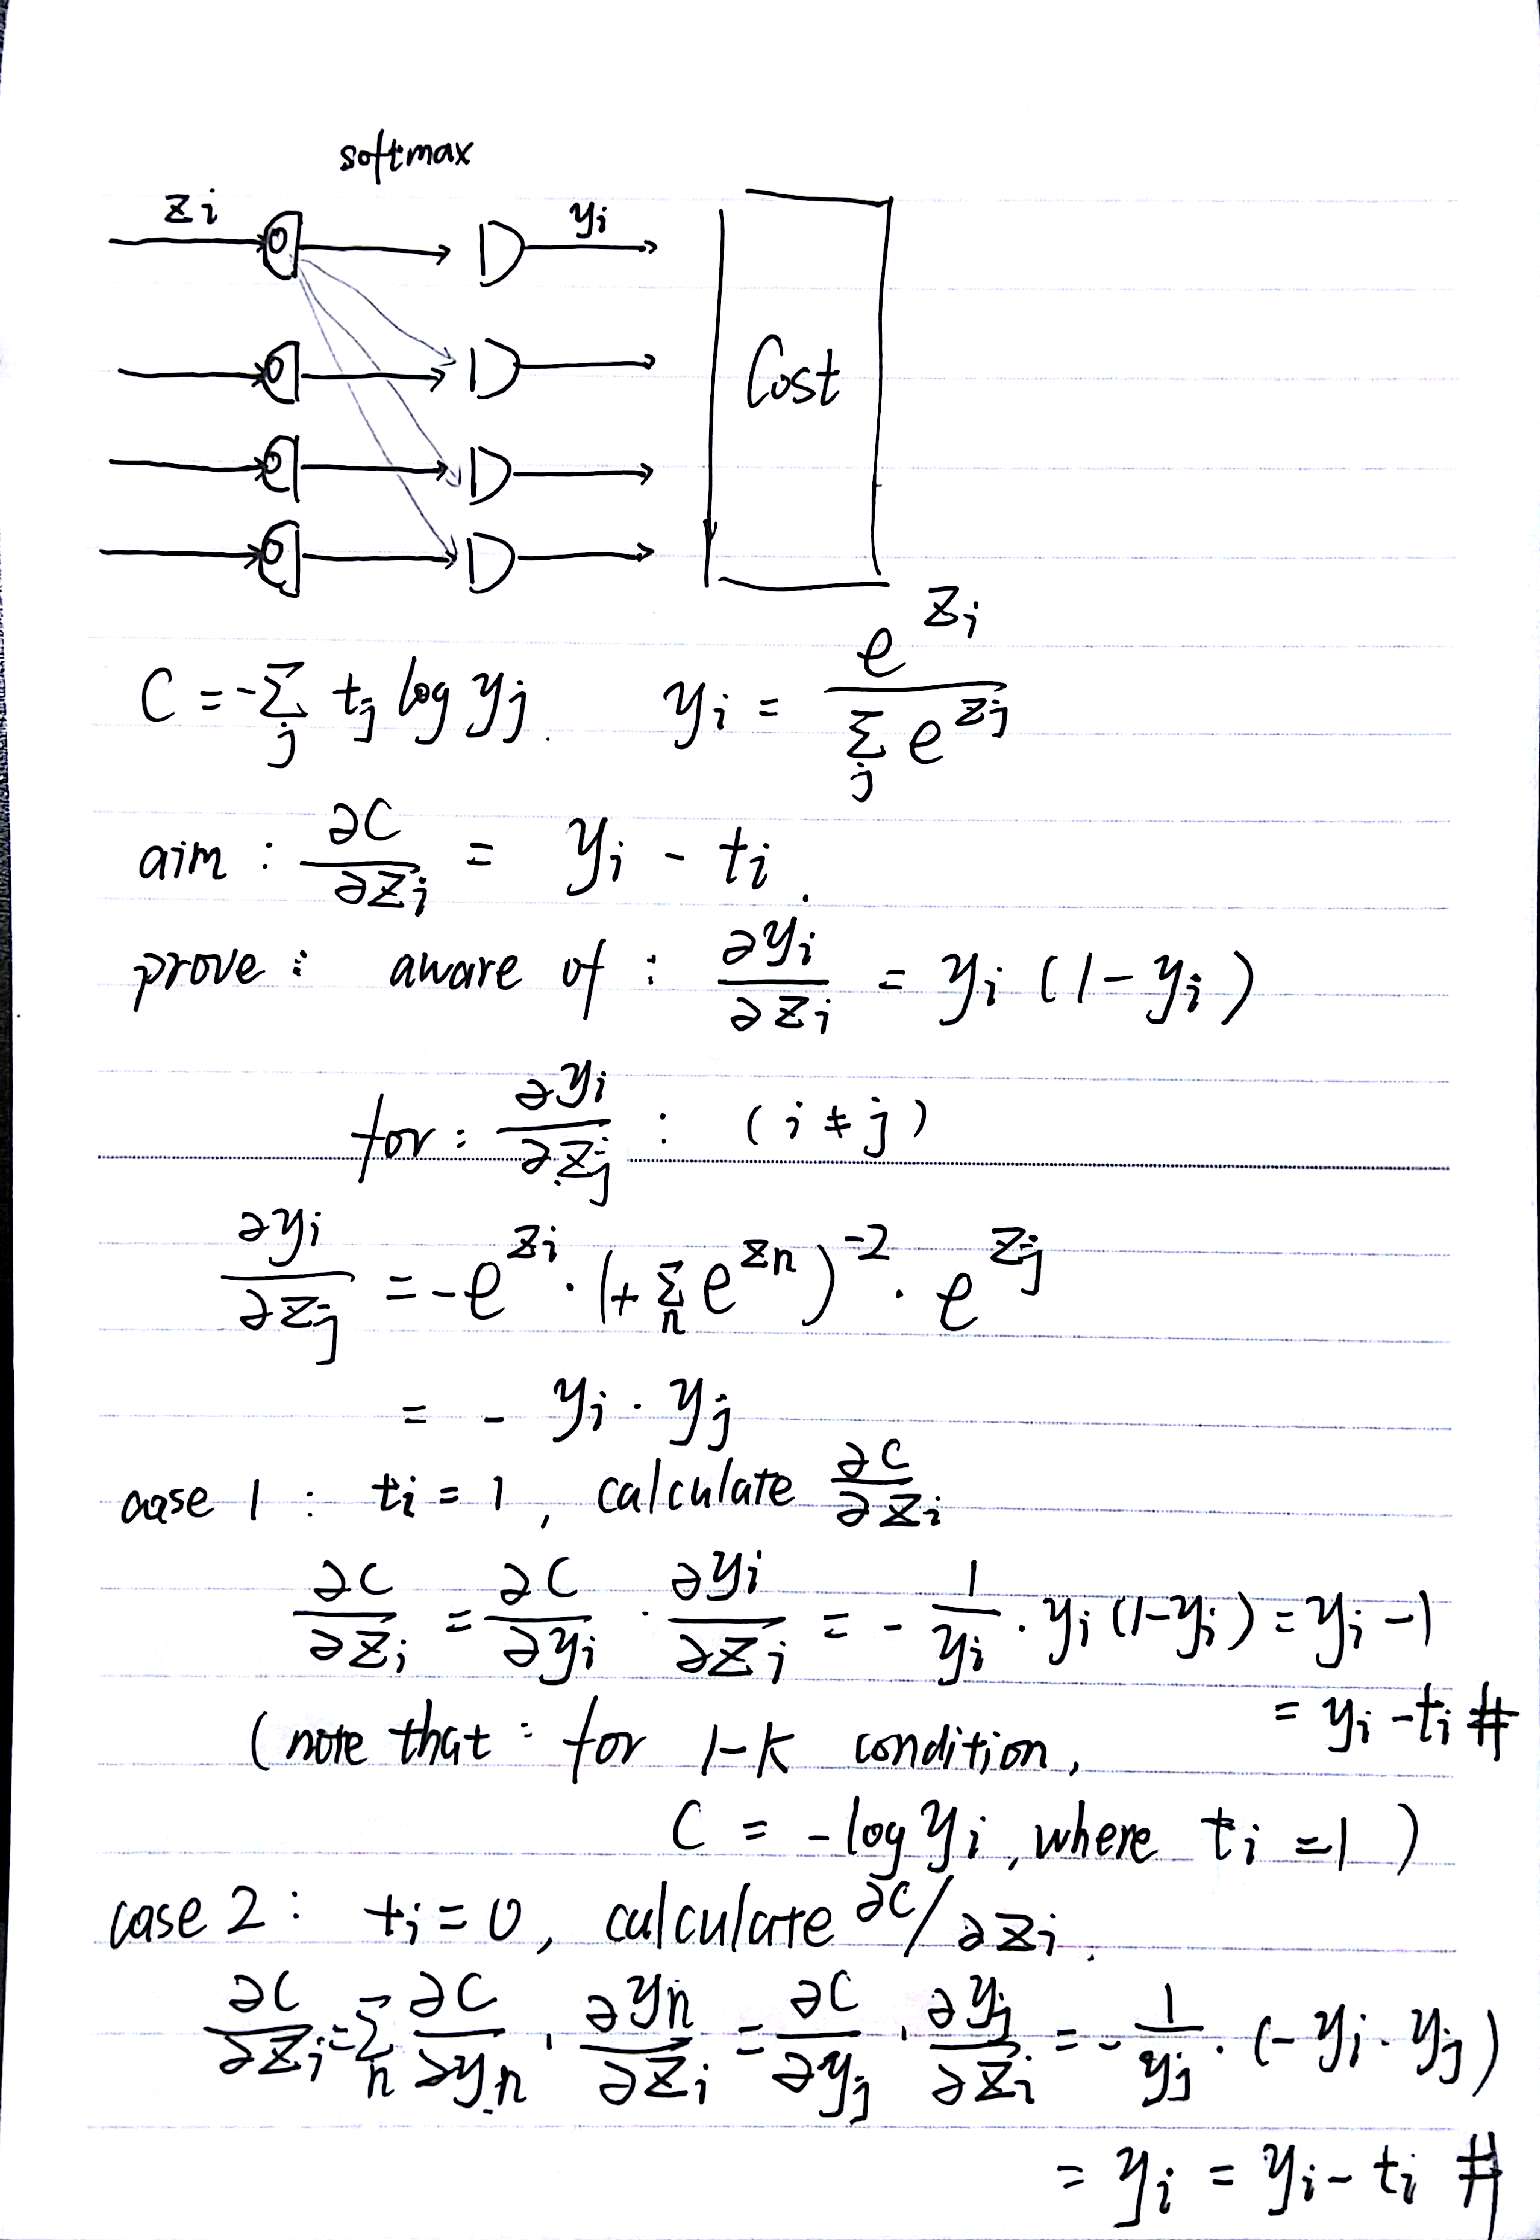 softmax
zi yi
Cost
C = -∑_j tj log yj. yi = e^{zi} / ∑_j e^{zj}
aim : ∂C/∂zi = yi - ti.
prove : aware of : ∂yi/∂zi = yi (1-yi)
for : ∂yi/∂zj : (i ≠ j)
∂yi/∂zj = -e^{zi} · (+ ∑_n e^{zn})^{-2} · e^{zj}
= - yi · yj
case 1 : ti = 1, calculate ∂C/∂zi
∂C/∂zi = ∂C/∂yi · ∂yi/∂zi = - 1/yi · yi (1-yi) = yi -1
= yi -ti #
(note that : for 1-k condition,
C = -log yi, where ti =1 )
case 2 : ti = 0, calculate ∂C/∂zi.
∂C/∂zi = ∑_n ∂C/∂yn · ∂yn/∂zi = ∂C/∂yj · ∂yj/∂zi = - 1/yj · (- yi · yj)
= yi = yi - ti #